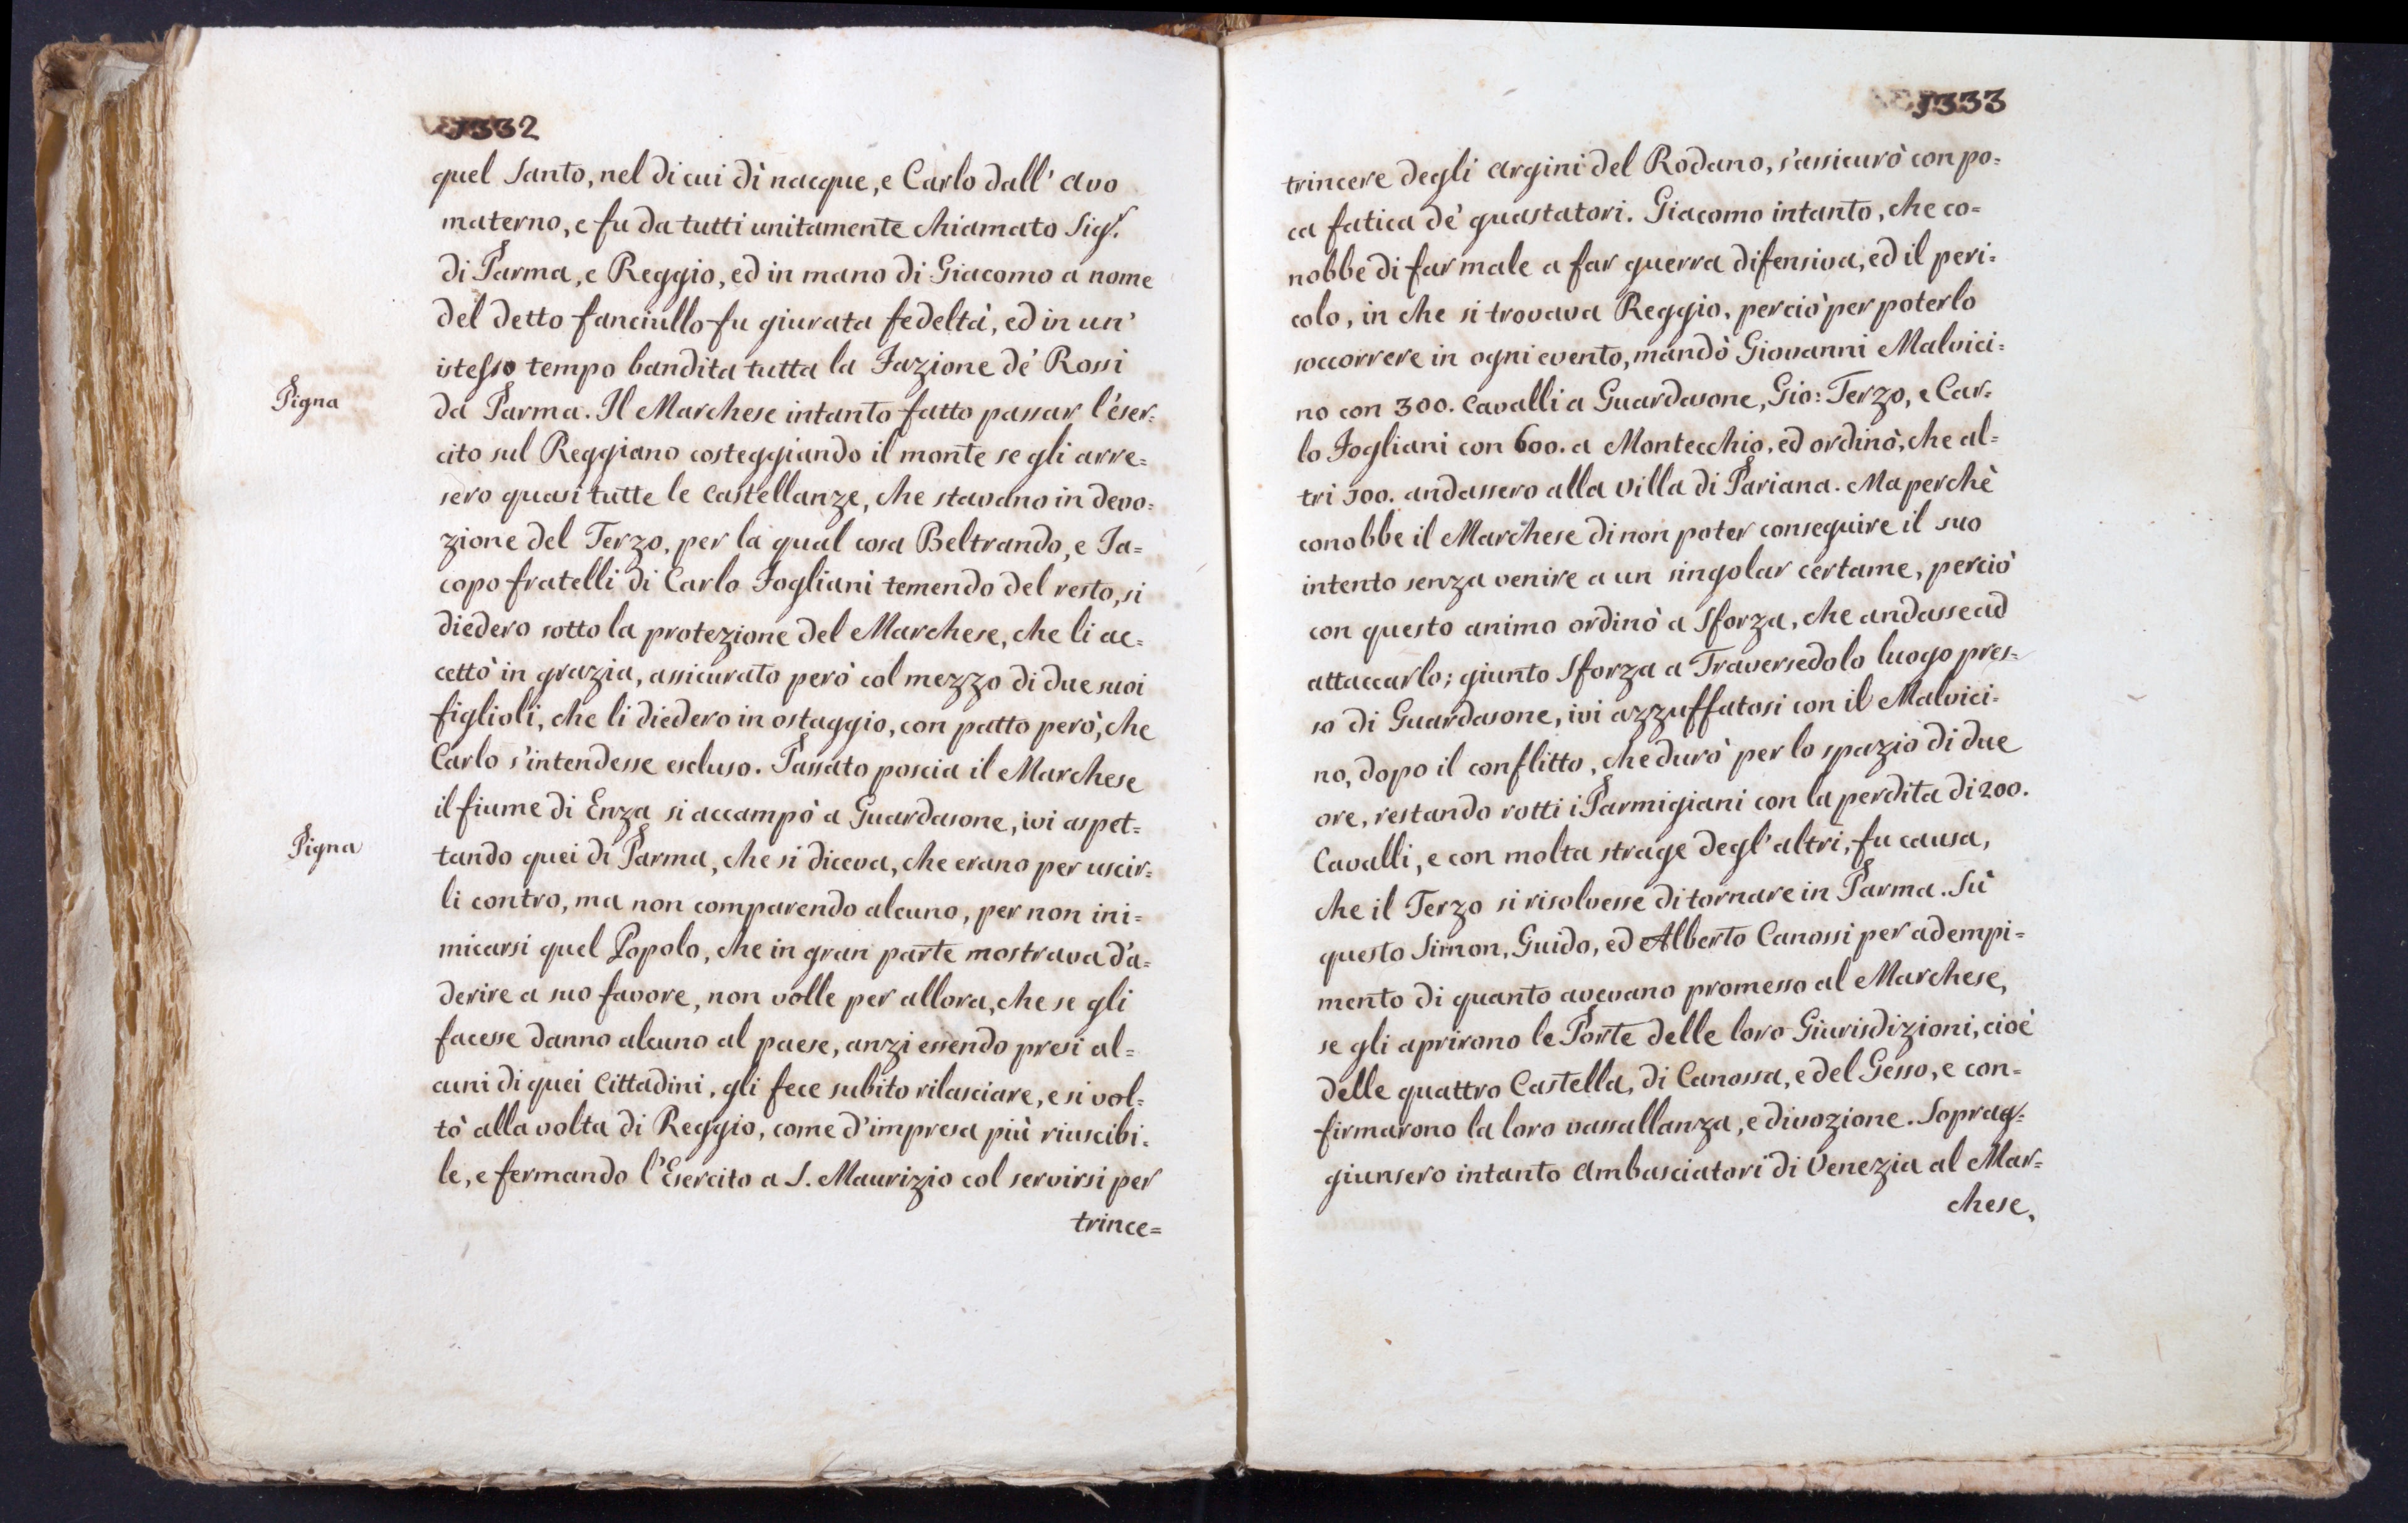 1332
quel Santo, nel di cui dì nacque, e Carlo dall' Avo
materno, e fu da tutti unitamente chiamato Sig.r
di Parma, e Reggio, ed in mano di Giacomo a nome
del detto fanciullo fu giurata fedeltà, ed in un'
istesso tempo bandita tutta la Fazione de' Rossi
Pigna
da Parma. Il Marchese intanto fatto passar l'eser=
cito sul Reggiano costeggiando il monte se gli arre=
sero quasi tutte le Castellanze, che stavano in devo=
zione del Terzo, per la qual cosa Beltrando, e Ja=
copo fratelli di Carlo Fogliani temendo del resto, si
diedero sotto la protezione del Marchese, che li ac=
cettò in grazia, assicurato però col mezzo di due suoi
figlioli, che li diedero in ostaggio, con patto però, che
Carlo s'intendesse escluso. Passato poscia il Marchese
il fiume di Enza si accampò a Guardasone, ivi aspet=
Pigna
tando quei di Parma, che si diceva, che erano per uscir=
li contro, ma non comparendo alcuno, per non ini=
micarsi quel Popolo, che in gran parte mostrava d'a=
derire a suo favore, non volle per allora, che se gli
facesse danno alcuno al paese, anzi essendo presi al=
cuni di quei Cittadini, gli fece subito rilasciare, e si vol=
tò alla volta di Reggio, come d'impresa più riuscibi=
le, e fermando l'Esercito a S. Maurizio col servirsi per
trince=
1333
trincere degli Argini del Rodano, s'assicurò con po=
ca fatica de' guastatori. Giacomo intanto, che co=
nobbe di far male a far guerra difensiva, ed il peri=
colo, in che si trovava Reggio, perciò per poterlo
soccorrere in ogni evento, mandò Giovanni Malvici=
no con 300. Cavalli a Guardasone, Gio: Terzo, e Car=
lo Fogliani con 600. a Montecchio, ed ordinò, che al=
tri 300. andassero alla Villa di Pariana. Ma perchè
conobbe il Marchese di non poter conseguire il suo
intento senza venire a un singolar certame, perciò
con questo animo ordinò a Sforza, che andasse ad
attaccarlo; giunto Sforza a Traversedolo luogo pres=
so di Guardasone, ivi azzuffatosi con il Malvici=
no, dopo il conflitto, che durò per lo spazio di due
ore, restando rotti i Parmigiani con la perdita di 200.
Cavalli, e con molta strage degl'altri, fu causa,
che il Terzo si risolvesse di tornare in Parma. Sù
questo Simon, Guido, ed Alberto Canossi per adempi=
mento di quanto avevano promesso al Marchese,
se gli aprirono le Porte delle loro Giurisdizioni, cioè
delle quattro Castella, di Canossa, e del Gesso, e con=
firmarono la loro vassallanza, e divozione. Soprag=
giunsero intanto Ambasciatori di Venezia al Mar=
chese,